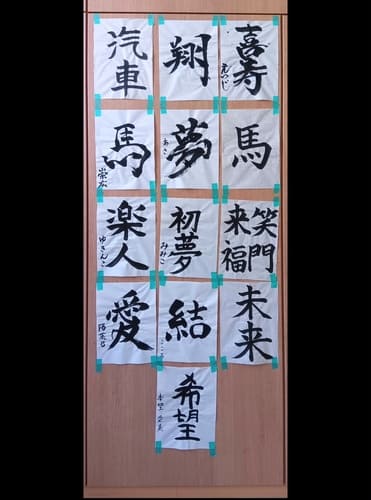 喜寿
えつじ
翔
汽車
馬
夢
あさ
馬
崇広
笑門
来福
初夢
みみこ
楽人
ゆきんこ
未来
結
こころ
愛
希望